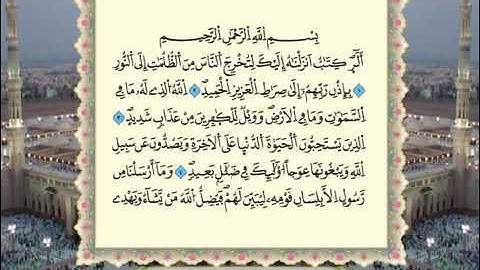 بِسْمِ اللَّهِ الرَّحْمَٰنِ الرَّحِيمِ
أَلَٓرۖ كِتَٰبٌ أَنزَلْنَٰهُ إِلَيْكَ لِتُخْرِجَ النَّاسَ مِنَ الظُّلُمَٰتِ إِلَى النُّورِ
بِإِذْنِ رَبِّهِمْۥٓ إِلَىٰ صِرَٰطِ الْعَزِيزِ الْحَمِيدِ ۝ اللَّهُ الَّذِے لَهُۥ مَا فِے
السَّمَٰوَٰتِ وَمَا فِے الْأَرْضِۖ وَوَيْلٌ لِّلْكَٰفِرِينَ مِنْ عَذَابٍ شَدِيدٍ ۝
الَّذِينَ يَسْتَحِبُّونَ الْحَيَوٰةَ الدُّنْيَا عَلَى الْأَخِرَةِ وَيَصُدُّونَ عَن سَبِيلِ
اللَّهِ وَيَبْغُونَهَا عِوَجاً أُوْلَٰٓئِكَ فِے ضَلَٰلٍ بَعِيدٍۖ ۝ وَمَآ أَرْسَلْنَا مِن
رَّسُولٍ إِلَّا بِلِسَانِ قَوْمِهِۦ لِيُبَيِّنَ لَهُمْۖ فَيُضِلُّ اللَّهُ مَنْ يَّشَآءُ وَيَهْدِے